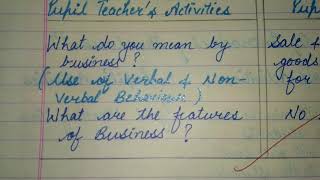 Pupil Teacher's Activities
Pup
What do you mean by
business ?
(Use of Verbal & Non-
Verbal Behaviour )
What are the features
of Business ?
Sale &
goods
for
No